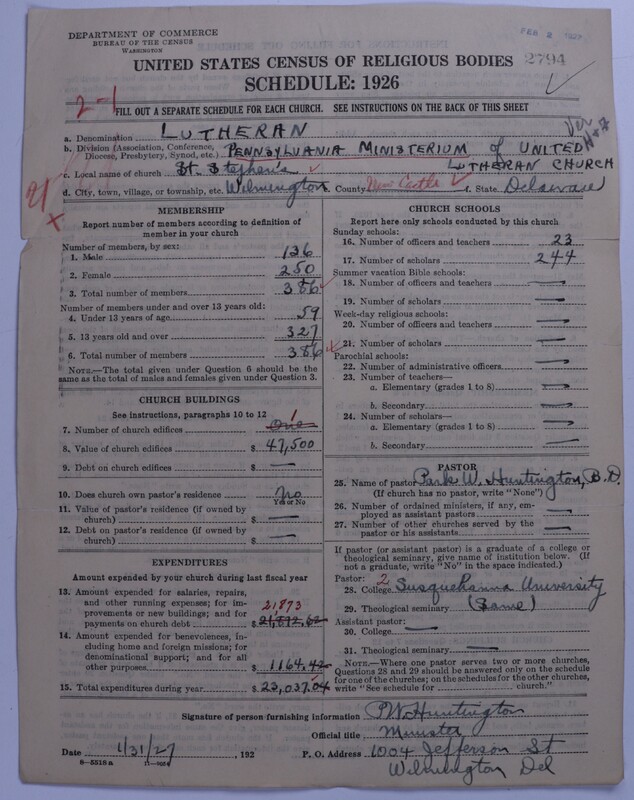 DEPARTMENT OF COMMERCE
BUREAU OF THE CENSUS
WASHINGTON
FEB 2 1927
2794
UNITED STATES CENSUS OF RELIGIOUS BODIES
SCHEDULE: 1926
2-1
FILL OUT A SEPARATE SCHEDULE FOR EACH CHURCH. SEE INSTRUCTIONS ON THE BACK OF THIS SHEET
a. Denomination LUTHERAN
b. Division (Association, Conference, Diocese, Presbytery, Synod, etc.) PENNSYLVANIA MINISTERIUM of UNITED LUTHERAN CHURCH
c. Local name of church St. Stephen's
d. City, town, village, or township, etc. Wilmington County New Castle f. State Delaware
MEMBERSHIP
Report number of members according to definition of
member in your church
Number of members, by sex:
1. Male 136
2. Female 250
3. Total number of members 386
Number of members under and over 13 years old:
4. Under 13 years of age 59
5. 13 years old and over 327
6. Total number of members 386
NOTE.—The total given under Question 6 should be the
same as the total of males and females given under Question 3.
CHURCH BUILDINGS
See instructions, paragraphs 10 to 12
7. Number of church edifices One 1
8. Value of church edifices $ 47,500
9. Debt on church edifices $ —
10. Does church own pastor's residence No
Yes or No
11. Value of pastor's residence (if owned by
church) $ —
12. Debt on pastor's residence (if owned by
church) $ —
EXPENDITURES
Amount expended by your church during last fiscal year
13. Amount expended for salaries, repairs,
and other running expenses; for im-
provements or new buildings; and for
payments on church debt $ 21,872.62
21,873
14. Amount expended for benevolences, in-
cluding home and foreign missions; for
denominational support; and for all
other purposes $ 1164.42
15. Total expenditures during year $ 23,037.04
CHURCH SCHOOLS
Report here only schools conducted by this church
Sunday schools:
16. Number of officers and teachers 23
17. Number of scholars 244
Summer vacation Bible schools:
18. Number of officers and teachers —
19. Number of scholars —
Week-day religious schools:
20. Number of officers and teachers —
21. Number of scholars —
Parochial schools:
22. Number of administrative officers —
23. Number of teachers—
a. Elementary (grades 1 to 8) —
b. Secondary —
24. Number of scholars—
a. Elementary (grades 1 to 8) —
b. Secondary —
PASTOR
25. Name of pastor Park W. Huntington, B.D.
(If church has no pastor, write "None")
26. Number of ordained ministers, if any, em-
ployed as assistant pastors —
27. Number of other churches served by the
pastor or his assistants —
If pastor (or assistant pastor) is a graduate of a college or
theological seminary, give name of institution below. (If
not a graduate, write "No" in the space indicated.)
Pastor: 2
28. College Susquehanna University
29. Theological seminary (Same)
Assistant pastor:
30. College —
31. Theological seminary —
NOTE.—Where one pastor serves two or more churches,
Questions 28 and 29 should be answered only on the schedule
for one of the churches; on the schedules for the other churches,
write "See schedule for church."
Signature of person furnishing information P.W. Huntington
Official title Minister
Date 1/31/27, 192 P. O. Address 1004 Jefferson St
Wilmington Del
8—5318a 11—9054